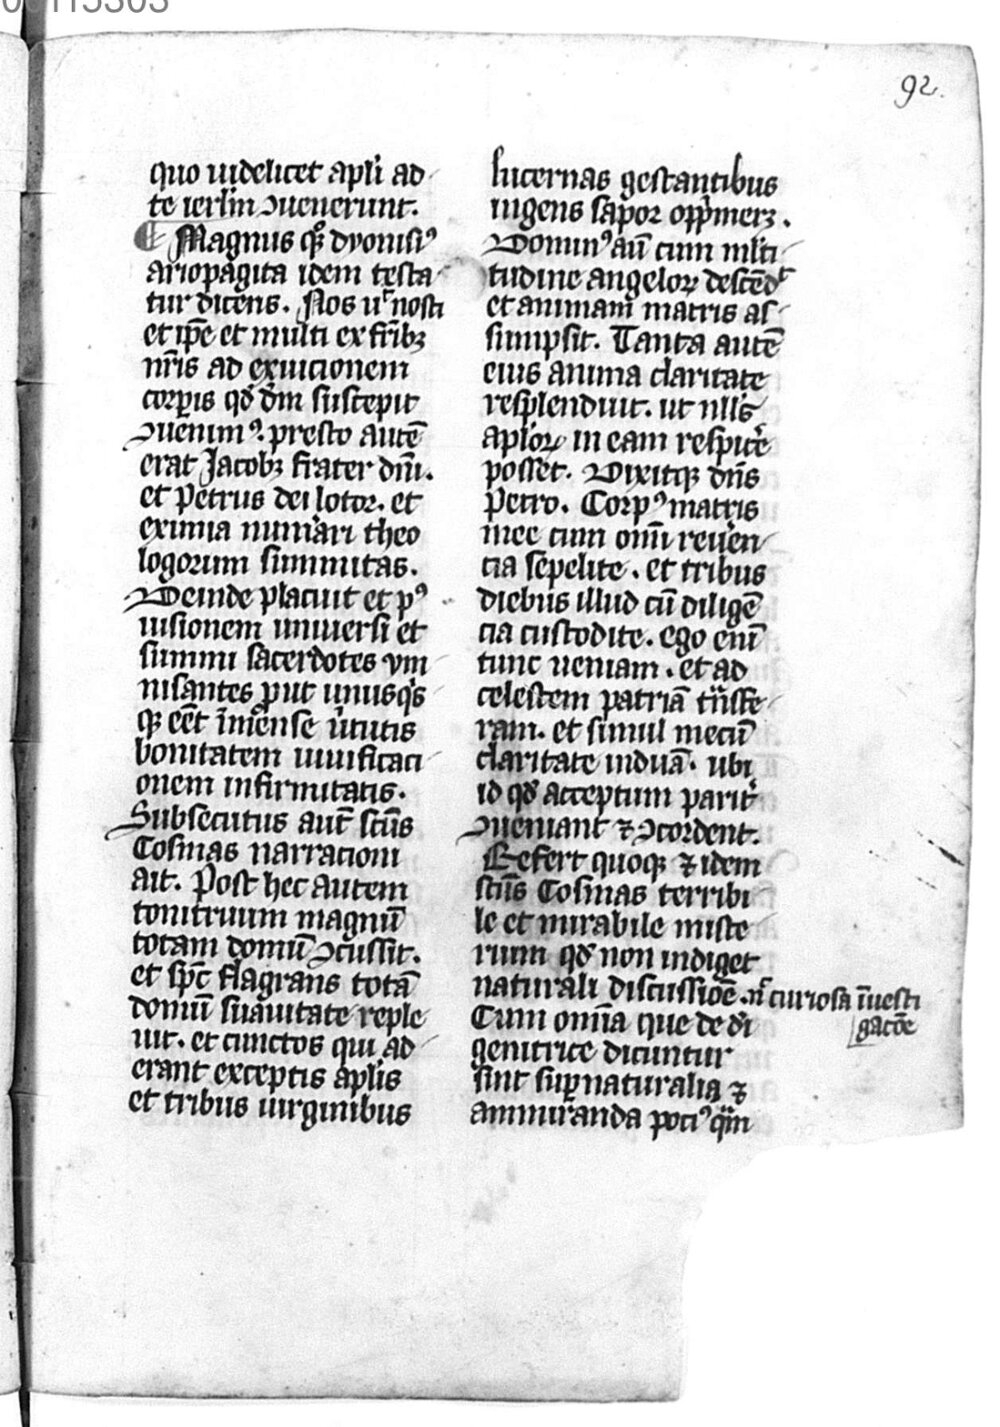 92.
quo uidelicet apli ad
te ierlm ↄuenerunt.
Magnus qꝫ dyonisiꝰ
ariopagita idem testa
tur dicens. Nos ut nosti
et ip̄e et multi ex fr̄ibꝫ
nr̄is ad exuicionem
corꝑis qđ dm̄ suscepit
ↄuenimꝰ. presto autē
erat Jacobꝫ frater dn̄i.
et Petrus dei lotor. et
eximia numari theo
logorum summitas.
Deinde placuit et pꝰ
uisionem uniuersi et
summi sacerdotes ym
nisantes ꝓut unusqͥs
qꝫ eēt īmense uͥtutis
bonitatem uiuificaci
onem infirmitatis.
Subsecutus aut̄ sc̄us
Cosmas narracioni
ait. Post hec autem
tonitruum magnū
totam domū ↄcussit.
et sp̄c flagrans totā
domū suauitate reple
uit. et cunctos qui ad
erant exceptis aplis
et tribus uirginibus
lucernas gestantibus
ingens sapor opp̄merꝫ.
Dominꝰ aū cum ml̄ti
tudine angeloꝝ descēd͛t
et animam matris as
sumpsit. Tanta autē
eius anima claritate
resplenduit. ut nll̄s
ap̄loꝝ in eam respic̄e
posset. Dixitqꝫ dn̄s
Petro. Corpꝰ matris
mee cum om̄i reueren
cia sepelite. et tribus
diebus illud cū diligē
cia custodite. ego enī
tunc ueniam. et ad
celestem patriā tn̄sfe
ram. et simul mecū
claritate induā. ubi
id qđ acceptum parit͛
ↄueniant ⁊ ↄcordent.
Refert quoqꝫ ⁊ idem
sc̄us Cosmas terribi
le et mirabile miste
rium qđ non indiget
naturali discussiōe. n͛ curiosa īuesti
gacōe
Cum omīa que de dī
genitrice dicuntur
sint suꝑnaturalia ⁊
ammiranda pociꝰ qͣm